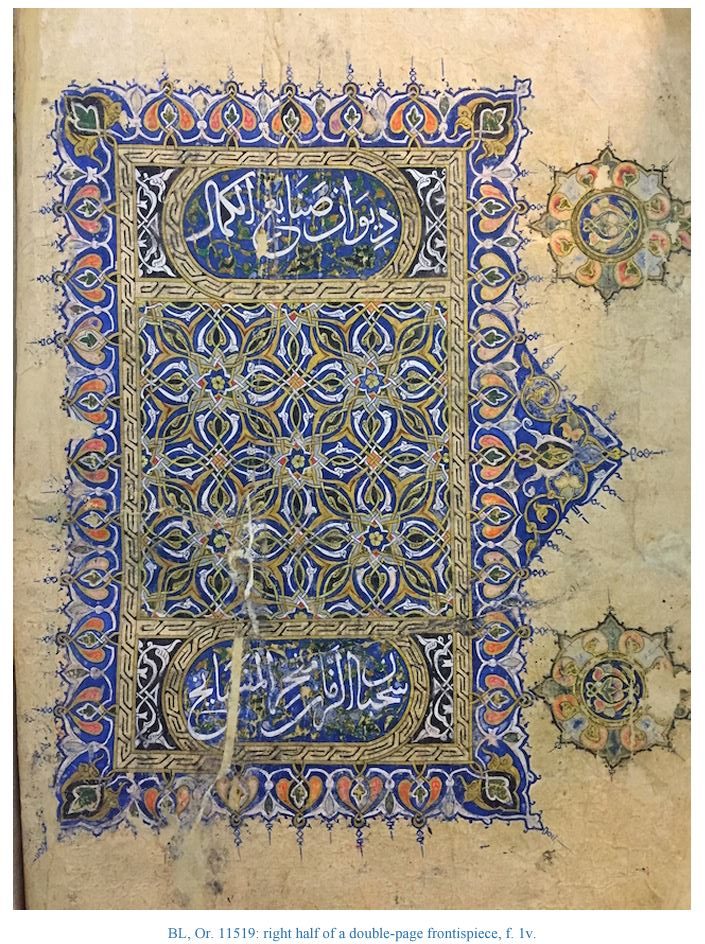 ديوان صنايع الكمال
سحبان الزمان المشايخ
BL, Or. 11519: right half of a double-page frontispiece, f. 1v.